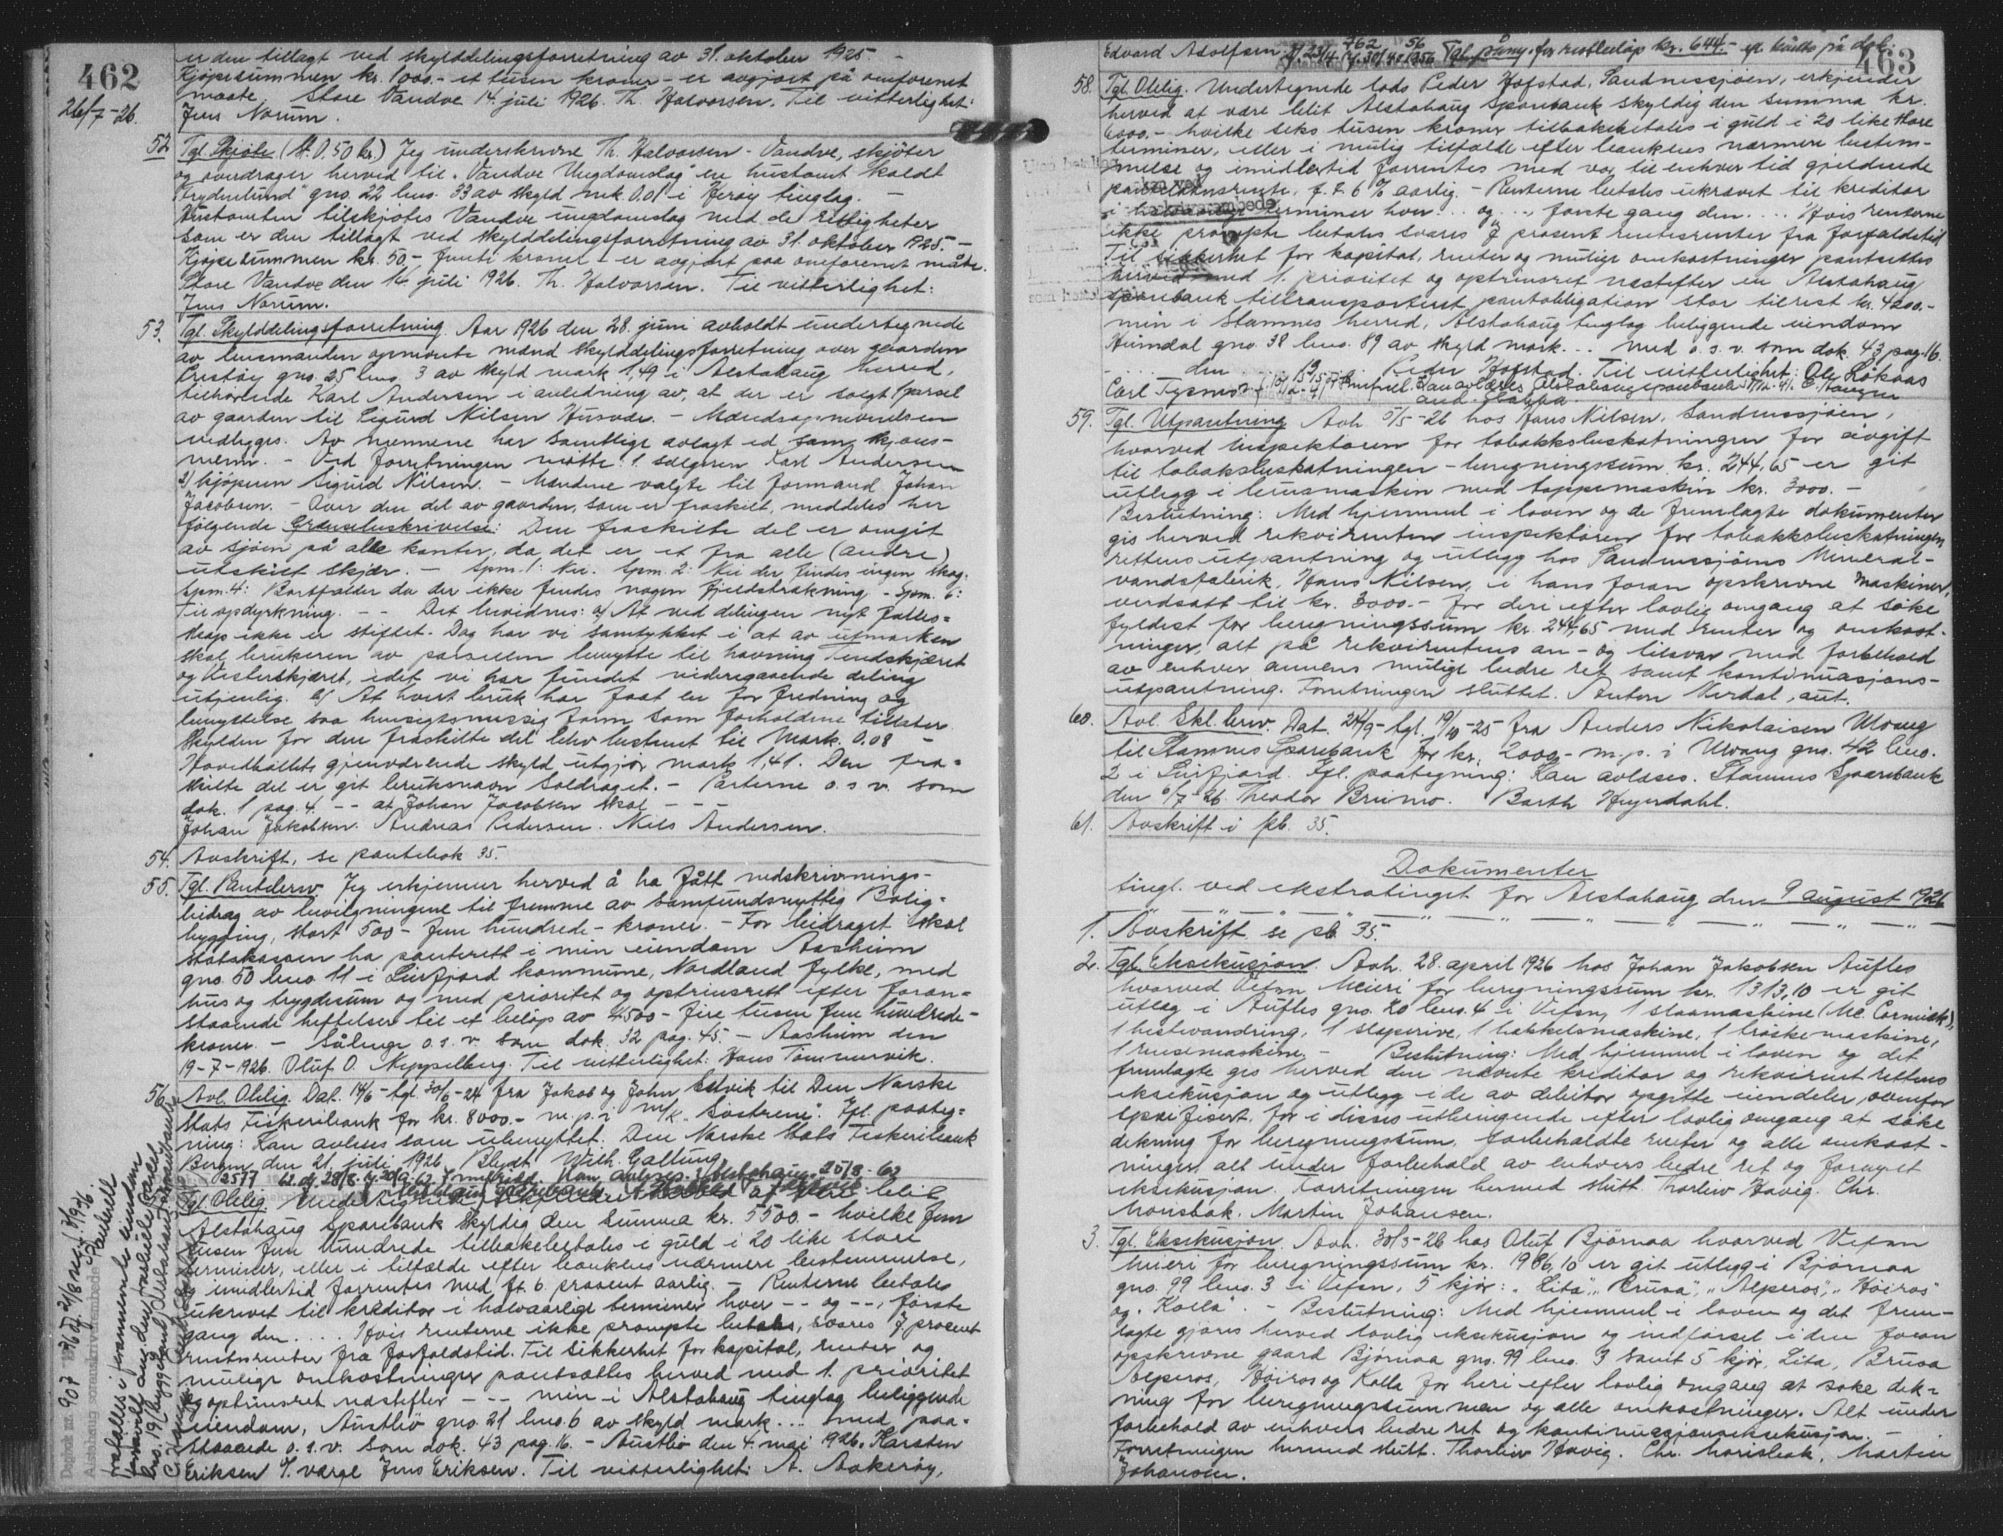 462
26/7-26.
er den tillagt ved skylddelingsforretning av 31. oktober 1925. -
Kjøpesummen kr. 1000.- et tusen kroner - er avgjort på omforenet
maate. Store Vandve 14. juli 1926. Th. Halvorsen. Til vitterlighet:
Jens Norum.
52 Tgl. Skjøte (St. O. 50 kr.) Jeg underskrevne Th. Halvorsen - Vandve, skjøter
og overdrager herved til "Vandve Ungdomslag" en hustomt kaldt
"Frydenlund" gno. 22 bno. 33 av skyld mrk. 0.01 i Herøy tinglag. -
Hustomten tilskjøtes Vandve ungdomslag med de rettigheter
som er den tillagt ved skylddelingsforretning av 31. oktober 1925. -
Kjøpesummen kr. 50.- femti kroner - er avgjort paa omforenet måte.
Store Vandve den 14. juli 1926. Th. Halvorsen. Til vitterlighet:
Jens Norum.
53. Tgl. Skylddelingsforretning. Aar 1926 den 28. juni avholdt undertegnede
av lensmanden opnævnte mænd skylddelingsforretning over gaarden
gno. 25 bno. 3 av skyld mark 1,49 i Alstahaug herred,
tilhørende Karl Andersen i anledning av, at der er solgt parsel
av gaarden til Sigurd Nilsen Husvær. - Mændsopnævnelsen
vedlegges. Av mennene har samtlige avlagt ed som skjøns-
menn. - Ved forretningen møtte: 1. sælgeren Karl Andersen
2) kjøperen Sigurd Nilsen. - Mændene valgte til formand Johan
Jacobsen. - Over den del av gaarden, som er fraskilt, meddeles her
følgende Grænsebeskrivelse: Den fraskilte del er omgit
av sjøen på alle kanter, da det er et fra alle (andre)
utskilt skjær. - Spm. 1: Nei. Spm. 2: Nei der findes ingen skog.
Spm. 4: Bortfalder da der ikke findes nogen fjeldstrækning - Spm. 6:
Til opdyrkning. - - Det bevidnes: a) At ved delingen nyt fælles=
skap ikke er stiftet. Dog har vi samtykket i at av utmarken
skal brukeren av parsellen benytte til havning Tindskjæret
og Vesterskjæret, idet vi har fundet videregaaende deling
utjenlig. b) At hvert bruk har faat en for fredning og
benyttelse saa hensigtsmessig form som forholdene tillater.
Skylden for den fraskilte del blev bestemt til mark 0,08 -
Hovedbølets gjenværende skyld utgjør mark 1,41. Den fra=
skilte del er git bruksnavn Soldraget. - Parterne o.s.v. som
dok. 1 pag. 4 - - at Johan Jacobsen skal - -
Johan Jakobsen. Andreas Pedersen. Nils Andersen.
54. Avskrift, se pantebok 35.
55. Tgl. Pantebrev Jeg erkjenner herved å ha fått nedskrivnings-
bidrag av bevilgningene til fremme av samfundsnyttig Bolig=
bygging, stort 500 - fem hundrede - kroner. - For bidraget skal
statskassen ha panterett i min eiendom Aasheim
gno. 50 bno 11 i Leirfjord kommune, Nordland fylke, med
hus og brygdesum og med prioritet og optrinsrett efter foran=
staaende heftelser til et beløp av 4500 - fire tusen fem hundrede -
kroner. - Således o.s.v. som dok. 32 pag. 45. - Aasheim den
19-7-1926. Oluf O. Neppelberg. Til vitterlighet: Hans Tømmervik.
56. Avl. Oblig. Dat. 14/6- tgl. 30/6-24 fra Jakob og John Estvik til Den Norske
Stats Fiskeribank for kr. 8000.- m.p. i m/k. "Søstrene". Tgl. paateg=
ning: Kan avleses som ubenyttet. Den Norske Stats Fiskeribank
Bergen den 21. juli 1926. Blydt. Wilh. Galtung.
Tgl. Oblig.
Alstahaug Sparebank skyldig den summa kr. 5500.- hvilke fem
tusen fem hundrede tilbakebetales i guld i 20 like store
terminer, eller i tilfælde efter bankens nærmere bestemmelse,
og imidlertid forrentes med f.t. 6 prosent aarlig. - Renterne betales
ukrevet til kreditor i halvaarlige terminer hver - - og - -, første
gang den .... Hvis renterne ikke prompte betales, svares 7 prosent
rentesrenter fra forfaldstid. Til sikkerhet for kapital, renter og
mulige omkostninger pantsættes herved med 1. prioritet
og optrinsret næstefter - - - min i Alstahaug tinglag beliggende
eiendom, Austbø gno. 21 bno. 6 av skyld mark ... med paa=
staaende o.s.v. som dok. 43 pag. 16. - Austbø den 4. mai 1926. Karsten
Eriksen f. værge Jens Eriksen. Til vitterlighet: A. Aakerøy,
463
Edvard Adolfsen.
58. Tgl. Oblig. Undertegnede lods Peder Hofstad, Sandnessjøen, erkjender
herved at være blit Alstahaug Sparebank skyldig den summa kr.
6000.- hvilke seks tusen kroner tilbakebetales i guld i 20 like store
terminer, eller i mulig tilfælde efter bankens nærmere bestem-
melse og imidlertid forrentes med vor til enhver tid gjeldende
f.t. 6 % aarlig. - Renterne betales ukrævet til kreditor
i halvaarlige terminer hver ... og ..., første gang den .... Hvis renterne
ikke prompte betales svares 7 prosent rentesrenter fra forfaldstid
Til sikkerhet for kapital, renter og mulige omkostninger pantsættes
herved med 1. prioritet og optrinsret næstefter en Alstahaug
sparebank tiltransportert pantobligation stor tilrest kr. 4200.-
min i Stamnes herred, Alstahaug tinglag beliggende eiendom
Heimdal gno. 38 bno. 89 av skyld mark ... med o.s.v. som dok. 43 pag. 16.
... den ... 19... Peder Hofstad. Til vitterlighet: Ole Løkaas
Carl Tysnes.
59. Tgl. Utpantning Avh. 5/5-26 hos Hans Nilsen, Sandnessjøen,
hvorved inspektøren for tobakksbeskatningen for avgift
til tobaksbeskatningen - beregningssum kr. 244,65 - er git
utlegg i brusmaskin med tappemaskin kr. 3000. -
Beslutning: Med hjemmel i loven og de fremlagte dokumenter
gis herved rekvirenten inspektøren for tobakksbeskatningen
rettens utpantning og utlegg hos Sandnessjøens Mineral-
vandsfabrik, Hans Nilsen, i hans foran opskrevne maskiner,
verdsatt til kr. 3000.- for deri efter lovlig omgang at søke
fyldest for beregningssum kr. 244,65 med renter og omkost-
ninger, alt på rekvirentens an - og tilsvar med forbehold
av enhver annens mulige bedre ret samt kontinuasjons-
utpantning. Forretningen sluttet. Anton Verdal, aut.
60. Avl. Skl. brev. Dat. 24/9- tgl. 19/10-25 fra Anders Nikolaisen Ulvang
til Stamnes Sparebank for kr. 2000.- m.p. i Ulvang gno. 42 bno.
2 i Leirfjord. Tgl. paategning: Kan avleses. Stamnes Sparebank
den 6/7-26. Theodor Brinno. Barth Heyerdahl.
61. Avskrift i pb. 35.
Dokumenter
tingl. ved ekstratinget for Alstahaug den 9 august 1926
1. Avskrift se pb 35.
2. Tgl. Eksekusjon. Avh. 28. april 1926 hos Johan Jakobsen Aufles
hvorved Vefsn Meieri for beregningssum kr. 1313,10 er git
utlæg i Aufles gno. 20 bno. 4 i Vefsn, 1 slaamaskine (Mc. Cormick),
1 hestevandring, 1 sloperive, 1 hakkelsmaskine, 1 træskemaskine,
1 rensemaskine. - Beslutning: Med hjemmel i loven og det
fremlagte gis herved den nævnte kreditor og rekvirent rettens
eksekusjon og utlegg i de av debitor opgitte eiendeler, ovenfor
spesifisert, for i disses utbringende efter lovlig omgang at søke
dekning for beregningssum, forbeholdte renter og alle omkost-
ninger, alt under forbehold av enhvers bedre ret og fornyet
eksekusjon. Forretningen hermed slutt. Thorleiv Havig. Chr.
Monsbak. Martin Johansen.
3. Tgl. Eksekusjon. Avh. 30/3-26 hos Oluf Bjørnaa hvorved Vefsn
Meieri for beregningssum kr. 1986,10 er git utlegg i Bjørnaa
gno. 99 bno. 3 i Vefsn, 5 kjør: "Lita", "Brusa", "Alperos", "Høiros"
og "Kolla". - Beslutning: Med hjemmel i loven og det frem-
lagte gjøres herved lovlig eksekusjon og indførsel i den foran
opskrevne gaard Bjørnaa gno. 99 bno. 3 samt 5 kjør, Lita, Brusa
Alperos, Høiros og Kolla for heri efter lovlig omgang at søke dek=
ning for beregningssummen og alle omkostninger. Alt under
forbehold av enhvers bedre ret og kontinuasjonseksekusjon. -
Forretningen hermed slutt. Thorleiv Havig. Chr. Monsbak, Martin
Johansen.